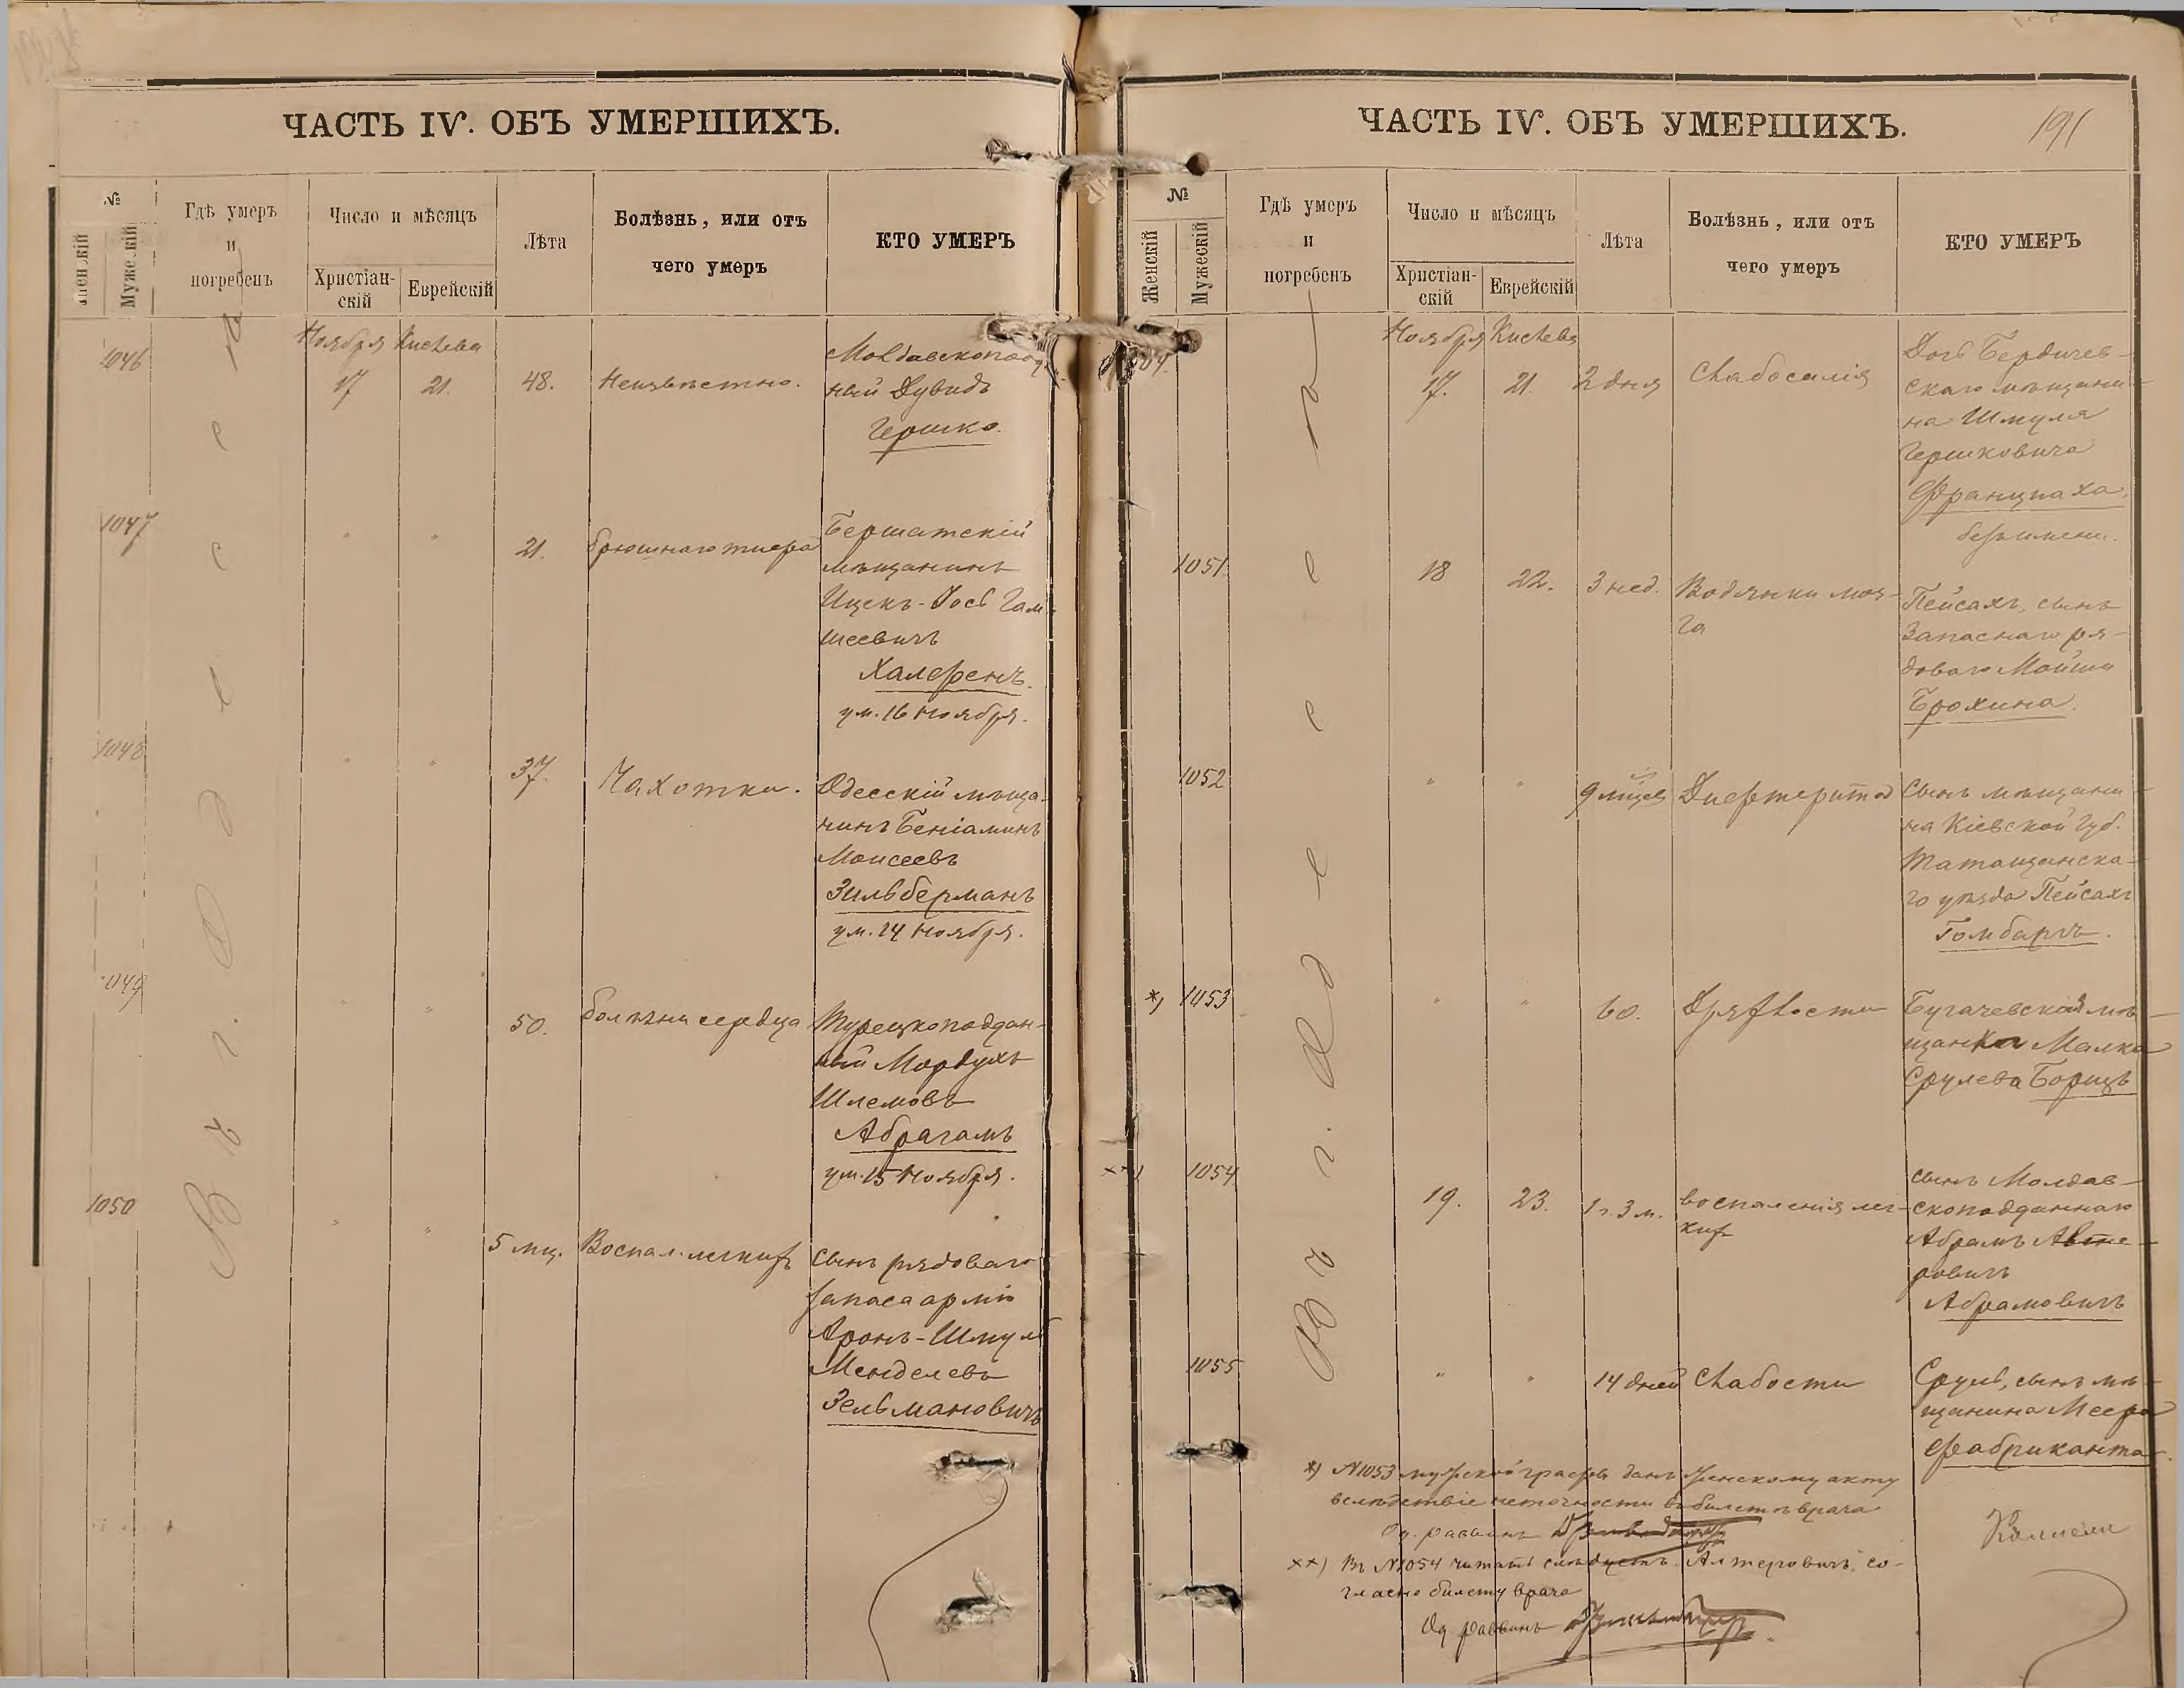 ЧАСТЬ IV. ОБЪ УМЕРШИХЪ.
№
Женскій
Мужескій
Гдѣ умеръ
и
погребенъ
Число и мѣсяцъ
Христіан-
скій
Еврейскій
Лѣта
Болѣзнь, или отъ
чего умеръ
КТО УМЕРЪ
Въ г. Одессѣ
1046
Ноября Кислева
17 21. 48. Неизвѣстно.
Молдавскопод
ный Дувидъ
Гершко.
1047
" " 21. брюшнаго тифа
Бершатскій
мѣщанинъ
Ицекъ-Іось Гам
шеевичъ
Халеренъ.
ум. 16 Ноября.
1048
" " 37. Чахотки.
Одесскій мѣща
нинъ Беніаминъ
Моисеевъ
Зильберманъ
ум. 14 Ноября.
1049
" " 50. болѣзни сердца
Турецкоподдан-
ный Мордухъ
Шлемовъ
Абрагамъ
ум. 15 Ноября.
1050
" " 5 мц. Воспал. легкихъ
сынъ рядоваго
запаса арміи
Аронъ-Шмуль
Менделевъ
Зельмановичъ
ЧАСТЬ IV. ОБЪ УМЕРШИХЪ.
191
№
Женскій
Мужескій
Гдѣ умеръ
и
погребенъ
Число и мѣсяцъ
Христіан-
скій
Еврейскій
Лѣта
Болѣзнь, или отъ
чего умеръ
КТО УМЕРЪ
Въ г. Одессѣ
Ноября Кислева
17. 21. 2 дня Слабосилія
Дочь Бердичев-
скаго мѣщани-
на Шмуля
Гершковича
Францмаха,
безъ имени.
1051
18 22. 3 нед. Водянки моз-
га
Пейсахъ, сынъ
Запаснаго ря-
доваго Мойши
Брохина.
1052
" " 9 мѣсцев Дифтерита
Сынъ мѣщани-
на Кіевской Губ.
Таташанска-
го уѣзда Пейсахъ
Гомбархъ.
*) 1053
" " 60. Дряхлости
Бугачевская мѣ-
щанка Малка
Срулева Борицъ
××) 1054
19. 23. 1 г. 3 м. воспаленія лег-
кихъ
сынъ Молдав-
скоподданнаго
Абрамъ Авте-
ровичъ
Абрамовичъ
1055
" " 14 дней Слабости
Сруль, сынъ мѣ-
щанина Меера
Фабриканта
*) №1053 мужской графы данъ женскому акту
вслѣдствіе неточности въ билетѣ врача
Од. раввинъ
××) Въ №1054 читать слѣдуетъ "Алтеровичъ", со-
гласно билету врача
Од. раввинъ